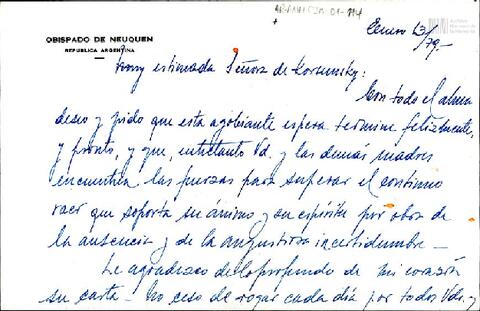 OBISPADO DE NEUQUEN
REPUBLICA ARGENTINA
Enero 13/79.-
Muy estimada Señora de Korsunsky:
Con todo el alma
deseo y pido que esta agobiante espera termine felizmente,
y pronto, y que, entretanto Vd. y las demás madres
encuentren las fuerzas para superar el continuo
roer que soporta su ánimo y su espíritu por obra de
la ausencia y de la angustiosa incertidumbre -
Le agradezco de lo profundo de mi corazón
su carta - No ceso de rogar cada día por todos Vds. y